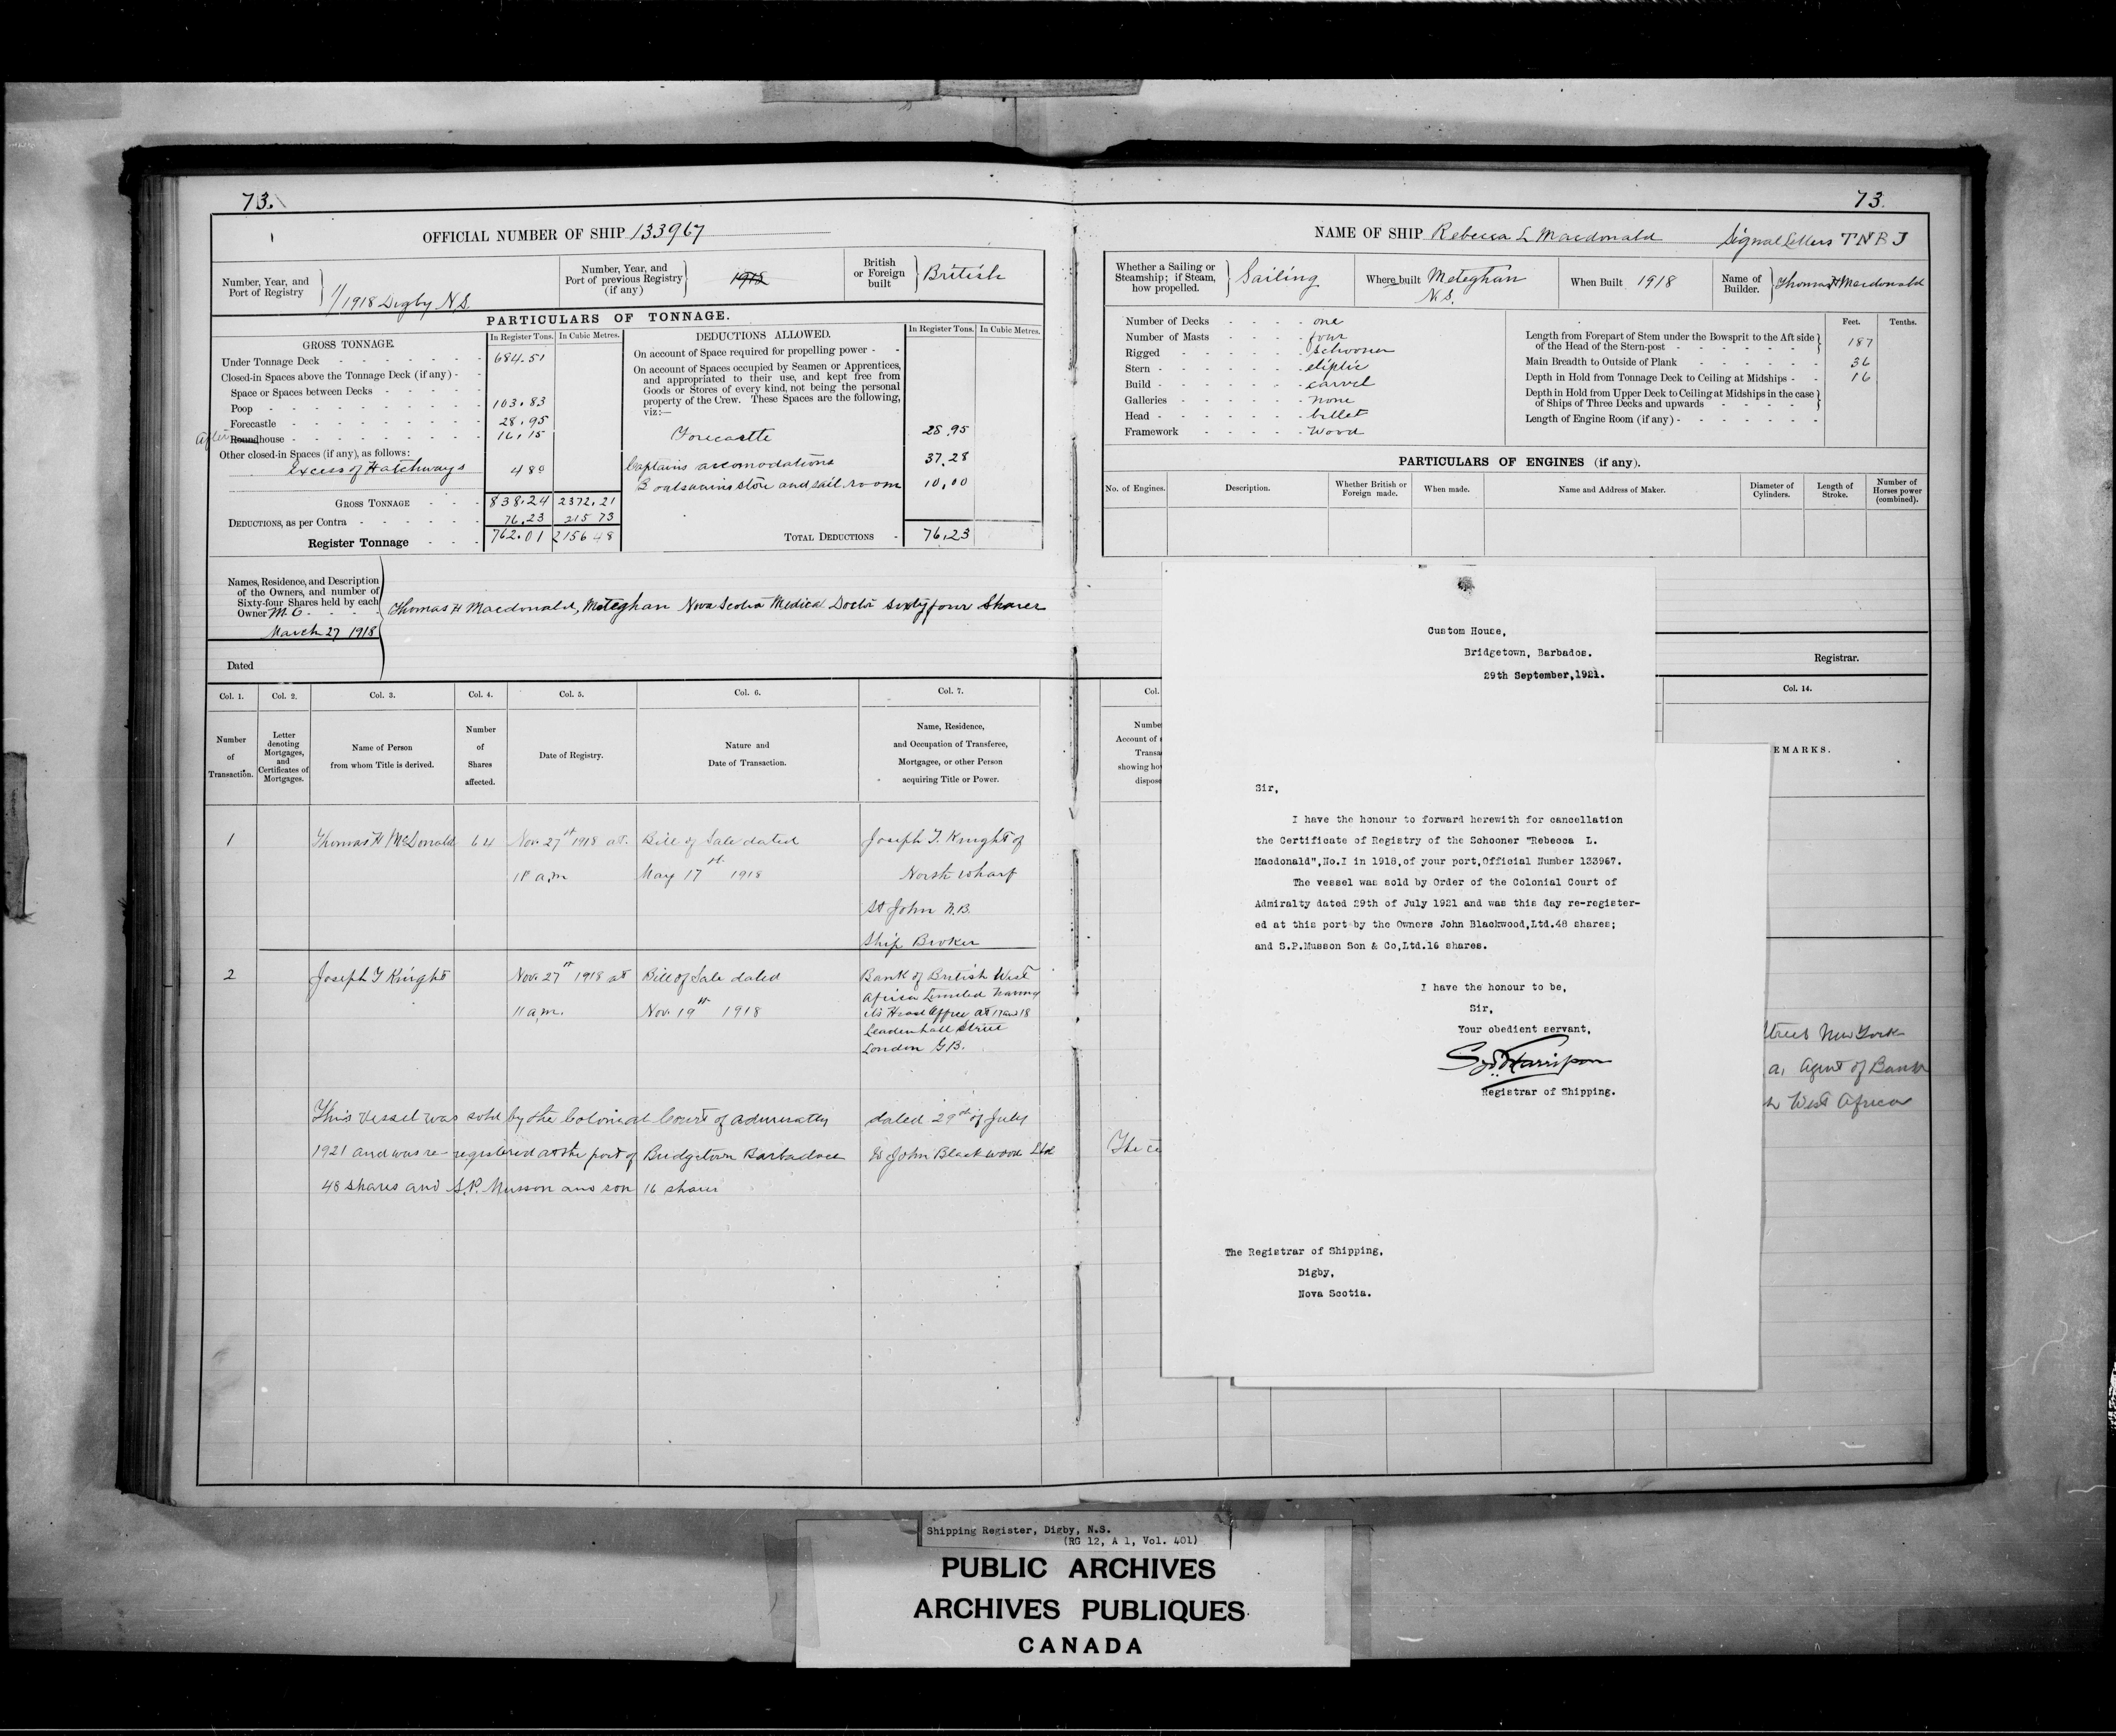 73.
OFFICIAL NUMBER OF SHIP 133967
Number, Year, and Port of Registry
1/1918 Digby N.S.
Number, Year, and Port of previous Registry (if any)
1918
British or Foreign built
British
PARTICULARS OF TONNAGE.
GROSS TONNAGE.
In Register Tons. In Cubic Metres.
Under Tonnage Deck 684.51
Closed-in Spaces above the Tonnage Deck (if any)
Space or Spaces between Decks
Poop 103.83
Forecastle 28.95
After Roundhouse 16.15
Other closed-in Spaces (if any), as follows:
Excess of Hatchways 480
GROSS TONNAGE 838.24 2372.21
DEDUCTIONS, as per Contra 76.23 215 73
Register Tonnage 762.01 2156 48
DEDUCTIONS ALLOWED.
In Register Tons. In Cubic Metres.
On account of Space required for propelling power
On account of Spaces occupied by Seamen or Apprentices,
and appropriated to their use, and kept free from
Goods or Stores of every kind, not being the personal
property of the Crew. These Spaces are the following,
viz:—
Forecastle 28.95
Captains accomodations 37.28
Boatswains store and sail room 10.00
TOTAL DEDUCTIONS 76.23
Names, Residence, and Description
of the Owners, and number of
Sixty-four Shares held by each
Owner M.C.
March 27 1918
Thomas H Macdonald, Meteghan Nova Scotia Medical Doctor sixty four Shares
Dated
Col. 1. Col. 2. Col. 3. Col. 4. Col. 5. Col. 6. Col. 7.
Number of Transaction.
Letter denoting Mortgages, and Certificates of Mortgages.
Name of Person from whom Title is derived.
Number of Shares affected.
Date of Registry.
Nature and Date of Transaction.
Name, Residence, and Occupation of Transferee, Mortgagee, or other Person acquiring Title or Power.
1 Thomas H McDonald 64 Nov. 27th 1918 at Bill of Sale dated Joseph T. Knight of
11 a.m May 17th 1918 North Wharf
St John N.B.
Ship Broker
2 Joseph T Knight Nov. 27th 1918 at Bill of Sale dated Bank of British West
11 a.m. Nov. 19th 1918 Africa Limited having
its Head Office at 17 and 18
Leadenhall Street
London G.B.
This Vessel was sold by the Colonial Court of admiralty dated 29th of July
1921 and was re-registered at the port of Bridgetown Barbadoes to John Blackwood Ltd
48 shares and S.P. Musson and son 16 shares
73.
NAME OF SHIP Rebecca L Macdonald Signal Letters TNBJ
Whether a Sailing or Steamship; if Steam, how propelled.
Sailing
Where built Meteghan N.S.
When Built 1918
Name of Builder. Thomas H Macdonald
Number of Decks one
Number of Masts four
Rigged Schooner
Stern eliptic
Build carvel
Galleries none
Head billet
Framework Wood
Feet. Tenths.
Length from Forepart of Stem under the Bowsprit to the Aft side
of the Head of the Stern-post 187
Main Breadth to Outside of Plank 36
Depth in Hold from Tonnage Deck to Ceiling at Midships 16
Depth in Hold from Upper Deck to Ceiling at Midships in the case
of Ships of Three Decks and upwards
Length of Engine Room (if any)
PARTICULARS OF ENGINES (if any).
No. of Engines.
Description.
Whether British or Foreign made.
When made.
Name and Address of Maker.
Diameter of Cylinders.
Length of Stroke.
Number of Horses power (combined).
Registrar.
Col.
Col. 14.
Numbe
Account of
Transa
showing ho
dispos
EMARKS.
treet New York
a, Agent of Bank
h West Africa
The ce
Custom House,
Bridgetown, Barbados.
29th September,1921.
Sir,
I have the honour to forward herewith for cancellation
the Certificate of Registry of the Schooner "Rebecca L.
Macdonald",No.I in 1918,of your port,Official Number 133967.
The vessel was sold by Order of the Colonial Court of
Admiralty dated 29th of July 1921 and was this day re-register-
ed at this port by the Owners John Blackwood,Ltd.48 shares;
and S.P.Musson Son & Co,Ltd.16 shares.
I have the honour to be,
Sir,
Your obedient servant,
Harrison
Registrar of Shipping.
The Registrar of Shipping,
Digby,
Nova Scotia.
Shipping Register, Digby, N.S.
(RG 12, A 1, Vol. 401)
PUBLIC ARCHIVES
ARCHIVES PUBLIQUES
CANADA